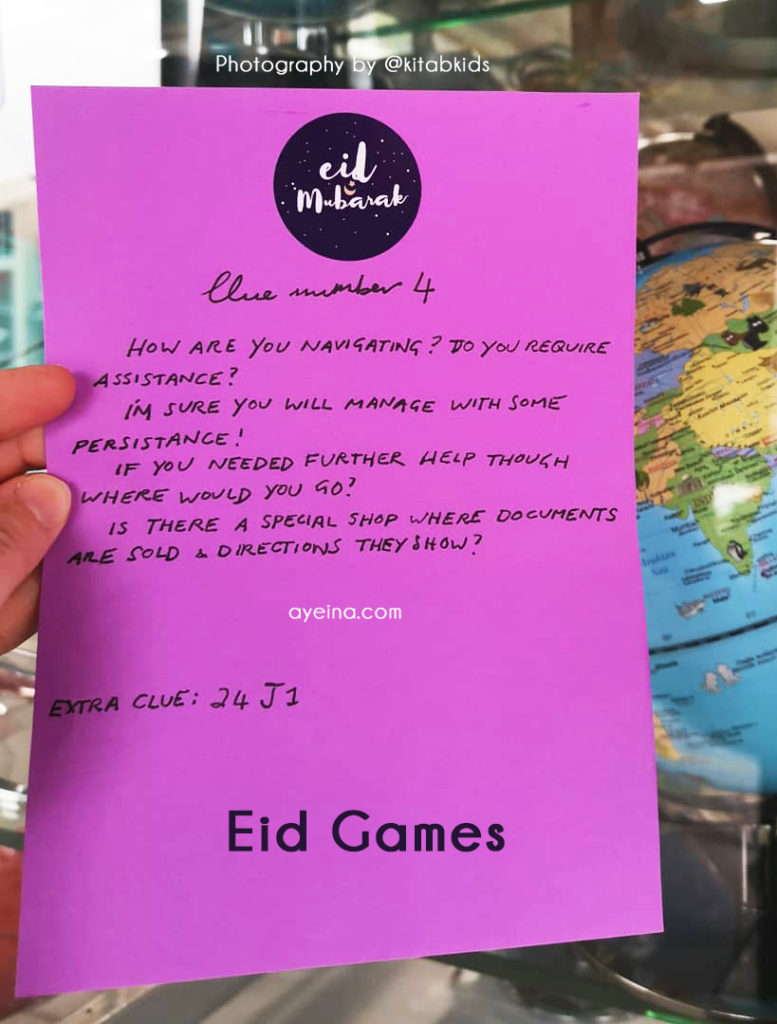 Photography by @kitabkids
eid
Mubarak
Clue number 4
HOW ARE YOU NAVIGATING? DO YOU REQUIRE
ASSISTANCE?
I'M SURE YOU WILL MANAGE WITH SOME
PERSISTANCE!
IF YOU NEEDED FURTHER HELP THOUGH
WHERE WOULD YOU GO?
IS THERE A SPECIAL SHOP WHERE DOCUMENTS
ARE SOLD & DIRECTIONS THEY SHOW?
ayeina.com
EXTRA CLUE: 24 J1
Eid Games